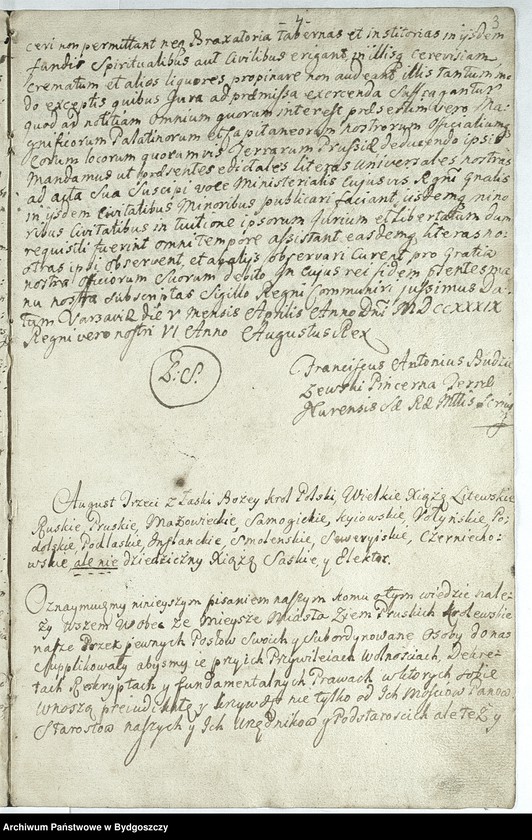 - 4 - 3
ceri non permittant neq Braxatoria tabernas et Institorias in ijsdem
fundis Spiritualibus aut Civilibus erigant, in illisq cerevisiam,
crematum et alios liquores propinare non audeant illis tantum mo=
do exceptis quibus Jura ad præmissa exercenda Suffragantur
quod ad notitiam omnium quorum interest præsertim vero Ma=
gnificorum Palatinorum et Capitaneorum nostrorum Officialiumq
eorum locorum quorumvis Terrarum Prussiæ deducendo ipsis
Mandamus ut præsentes edictales literas Universales nostras
ad acta Sua Suscipi voce Ministerialis Cujusvis Regni Gnalis
in ijsdem Civitatibus Minoribus publicari faciant, iisdemq mino
ribus Civitatibus in tuitione ipsorum Jurium et Libertatum dum
requisiti fuerint omni tempore assistant easdemq literas no=
stras ipsi observent, et ab alijs observari curent pro Gratia
nostra officiorum Suorum debito In cujus rei fidem præntes ma
nu nostra Subscriptas Sigillo Regni Communiri jussimus Da=
tum Varsaviæ die V Mensis Aprilis Anno Dni MDCCXXXIX
Regni vero nostri VI Anno Augustus Rex
L: S:
Franciscus Antonius Budzi
szewski Pincerna Terræ
Nurensis Sæ Ræ Mttis
August Trzeci z Łaski Bozey Krol Polski, Wielkie Xiąże Litewskie
Ruskie, Pruskie, Mazowieckie, Samogickie, Kyiowskie, Volyńskie, Po=
dolskie, Podlaskie, Inflanckie, Smolenskie, Seweryiskie, Czerniecho=
wskie ale nie dziedziczny Xiąże Saskie, y Elektor.
Oznaymuiemy ninieyszym pisaniem naszym komu o tym wiedzieć nale=
ży wszem wobec że mnieysze Miasta Ziem Pruskich Krolewskie
nasze przez pewnych Posłow Swoich y Subordynowane Osoby do nas
supplikowały abyśmy ie przy ich Przywileiach Wolnościach, Dekre=
tach Reskryptach y fundamentalnych Prawach w ktorych sobie
wnoszą preiudicatę y krzywdę nie tylko od Ich Mosciow Panow
Starostow naszych y Ich Urzędnikow y Podstarościch ale też y
Archiwum Państwowe w Bydgoszczy